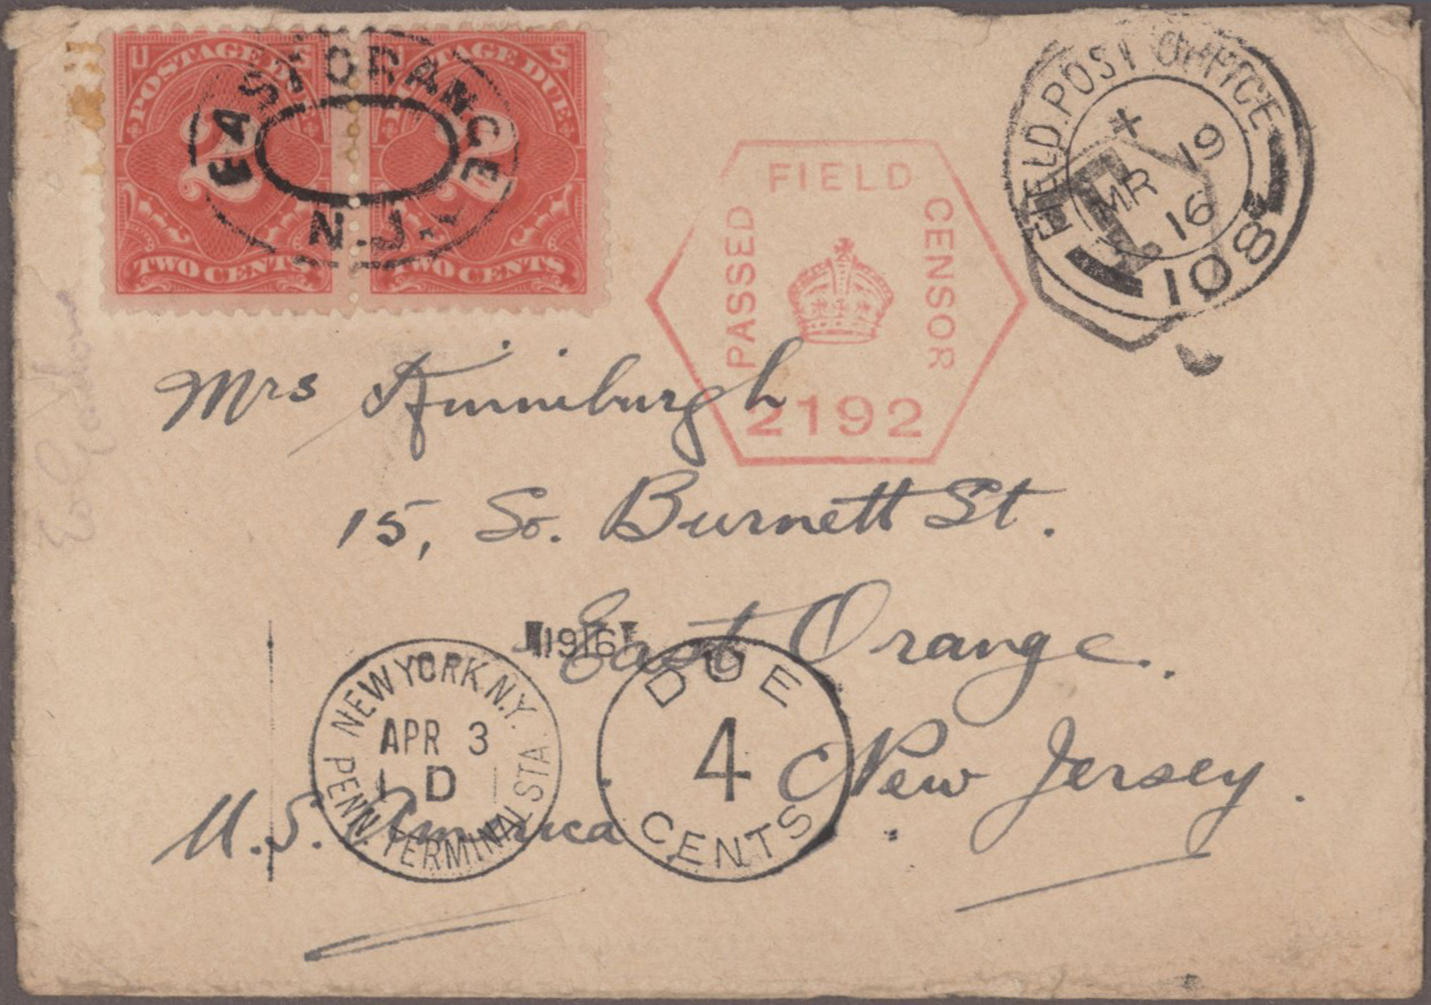 U S
POSTAGE DUE
2
TWO CENTS
U S
POSTAGE DUE
2
TWO CENTS
EAST ORANGE
N.J.
PASSED FIELD CENSOR
2192
FIELD POST OFFICE
MR 19
16
108
T
Mrs Kinniburgh
15, So. Burnett St.
East Orange.
New Jersey.
U.S. America
1916
NEW YORK, N.Y.
APR 3
1 D
PENN. TERMINAL STA.
DUE
4
CENTS